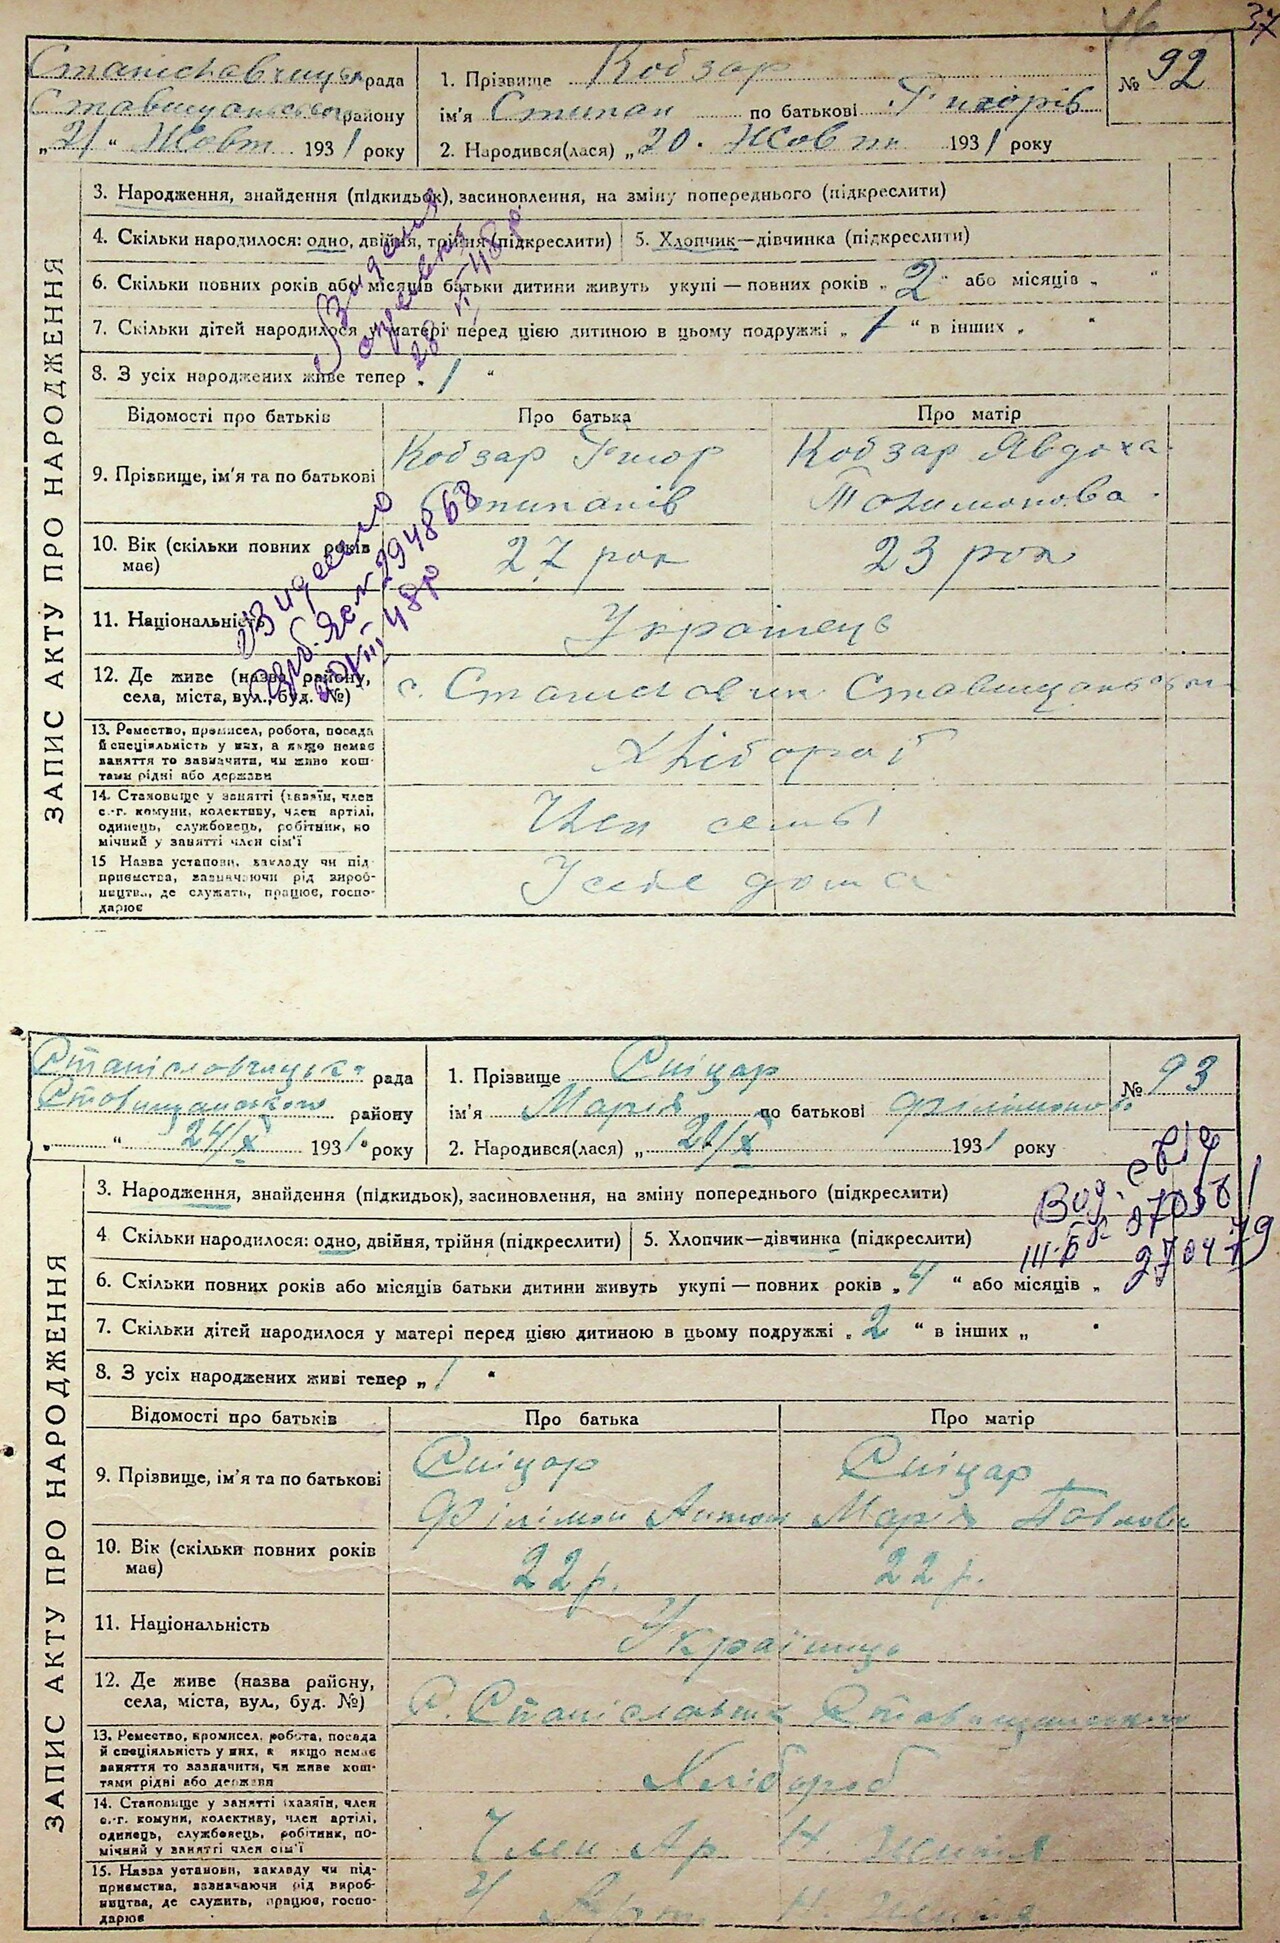 37
46
Станіславчицька рада
Ставищанського району
„21“ Жовт 1931 року
1. Прізвище Кобзар
№ 92
ім'я Стипан по батькові Григорів
2. Народився(лася) „20. Жовтн 1931 року
ЗАПИС АКТУ ПРО НАРОДЖЕННЯ
3. Народження, знайдення (підкидьок), засиновлення, на зміну попереднього (підкреслити)
4. Скільки народилося: одно, двійня, трійня (підкреслити) 5. Хлопчик—дівчинка (підкреслити)
6. Скільки повних років або місяців батьки дитини живуть укупі — повних років „2“ або місяців „ “
7. Скільки дітей народилося у матері перед цією дитиною в цьому подружжі „1“ в інших „ “
8. З усіх народжених живе тепер „1“
Видана
справка
48 р
Відомості про батьків Про батька Про матір
9. Прізвище, ім'я та по батькові
Кобзар Григор Кобзар Явдоха
Стипанів
10. Вік (скільки повних років має)
27 рок 23 рок
Видано
294868
48р
11. Національність Українець
12. Де живе (назва району, села, міста, вул., буд. №)
с. Станиславчик Ставищанського
13. Ремество, промисел, робота, посада й спеціяльність у них, а якщо немає заняття то зазначити, чи живе коштами рідні або держави
хлібороб
14. Становище у занятті (хазяїн, член с.-г. комуни, колективу, член артілі, одинець, службовець, робітник, помічний у занятті член сім'ї
Член семьї
15 Назва установи, закладу чи підприємства, зазначаючи рід виробництва, де служать, працює, господарює
У себе дома
Станіславчицька рада
Ставищанського району
„ “ 24/X 1931 року
1. Прізвище Сніцар
№ 93
ім'я Марія по батькові Філімонова
2. Народився(лася) „ 20/X 1931 року
ЗАПИС АКТУ ПРО НАРОДЖЕННЯ
3. Народження, знайдення (підкидьок), засиновлення, на зміну попереднього (підкреслити)
4 Скільки народилося: одно, двійня, трійня (підкреслити) 5. Хлопчик—дівчинка (підкреслити)
III-БК
27 04 79
6. Скільки повних років або місяців батьки дитини живуть укупі — повних років „4“ або місяців „
7. Скільки дітей народилося у матері перед цією дитиною в цьому подружжі „2“ в інших „ “
8. З усіх народжених живі тепер „1“
Відомості про батьків Про батька Про матір
9. Прізвище, ім'я та по батькові
Сніцар Сніцар
Філімон Антон Марія Павлова
10. Вік (скільки повних років має)
22 р. 22 р.
11. Національність Українці
12. Де живе (назва району, села, міста, вул., буд. №)
с. Станіславчик Ставищанського
13. Ремество, промисел, робота, посада й спеціяльність у них, а якщо немає заняття то зазначити, чи живе коштами рідні або держави
Хлібороб
14. Становище у занятті (хазяїн, член с.-г. комуни, колективу, член артілі, одинець, службовець, робітник, помічний у занятті член сім'ї
Член Ар Н. Життя
15. Назва установи, закладу чи підприємства, зазначаючи рід виробництва, де служить, працює, господарює
У Арт. Н. Життя